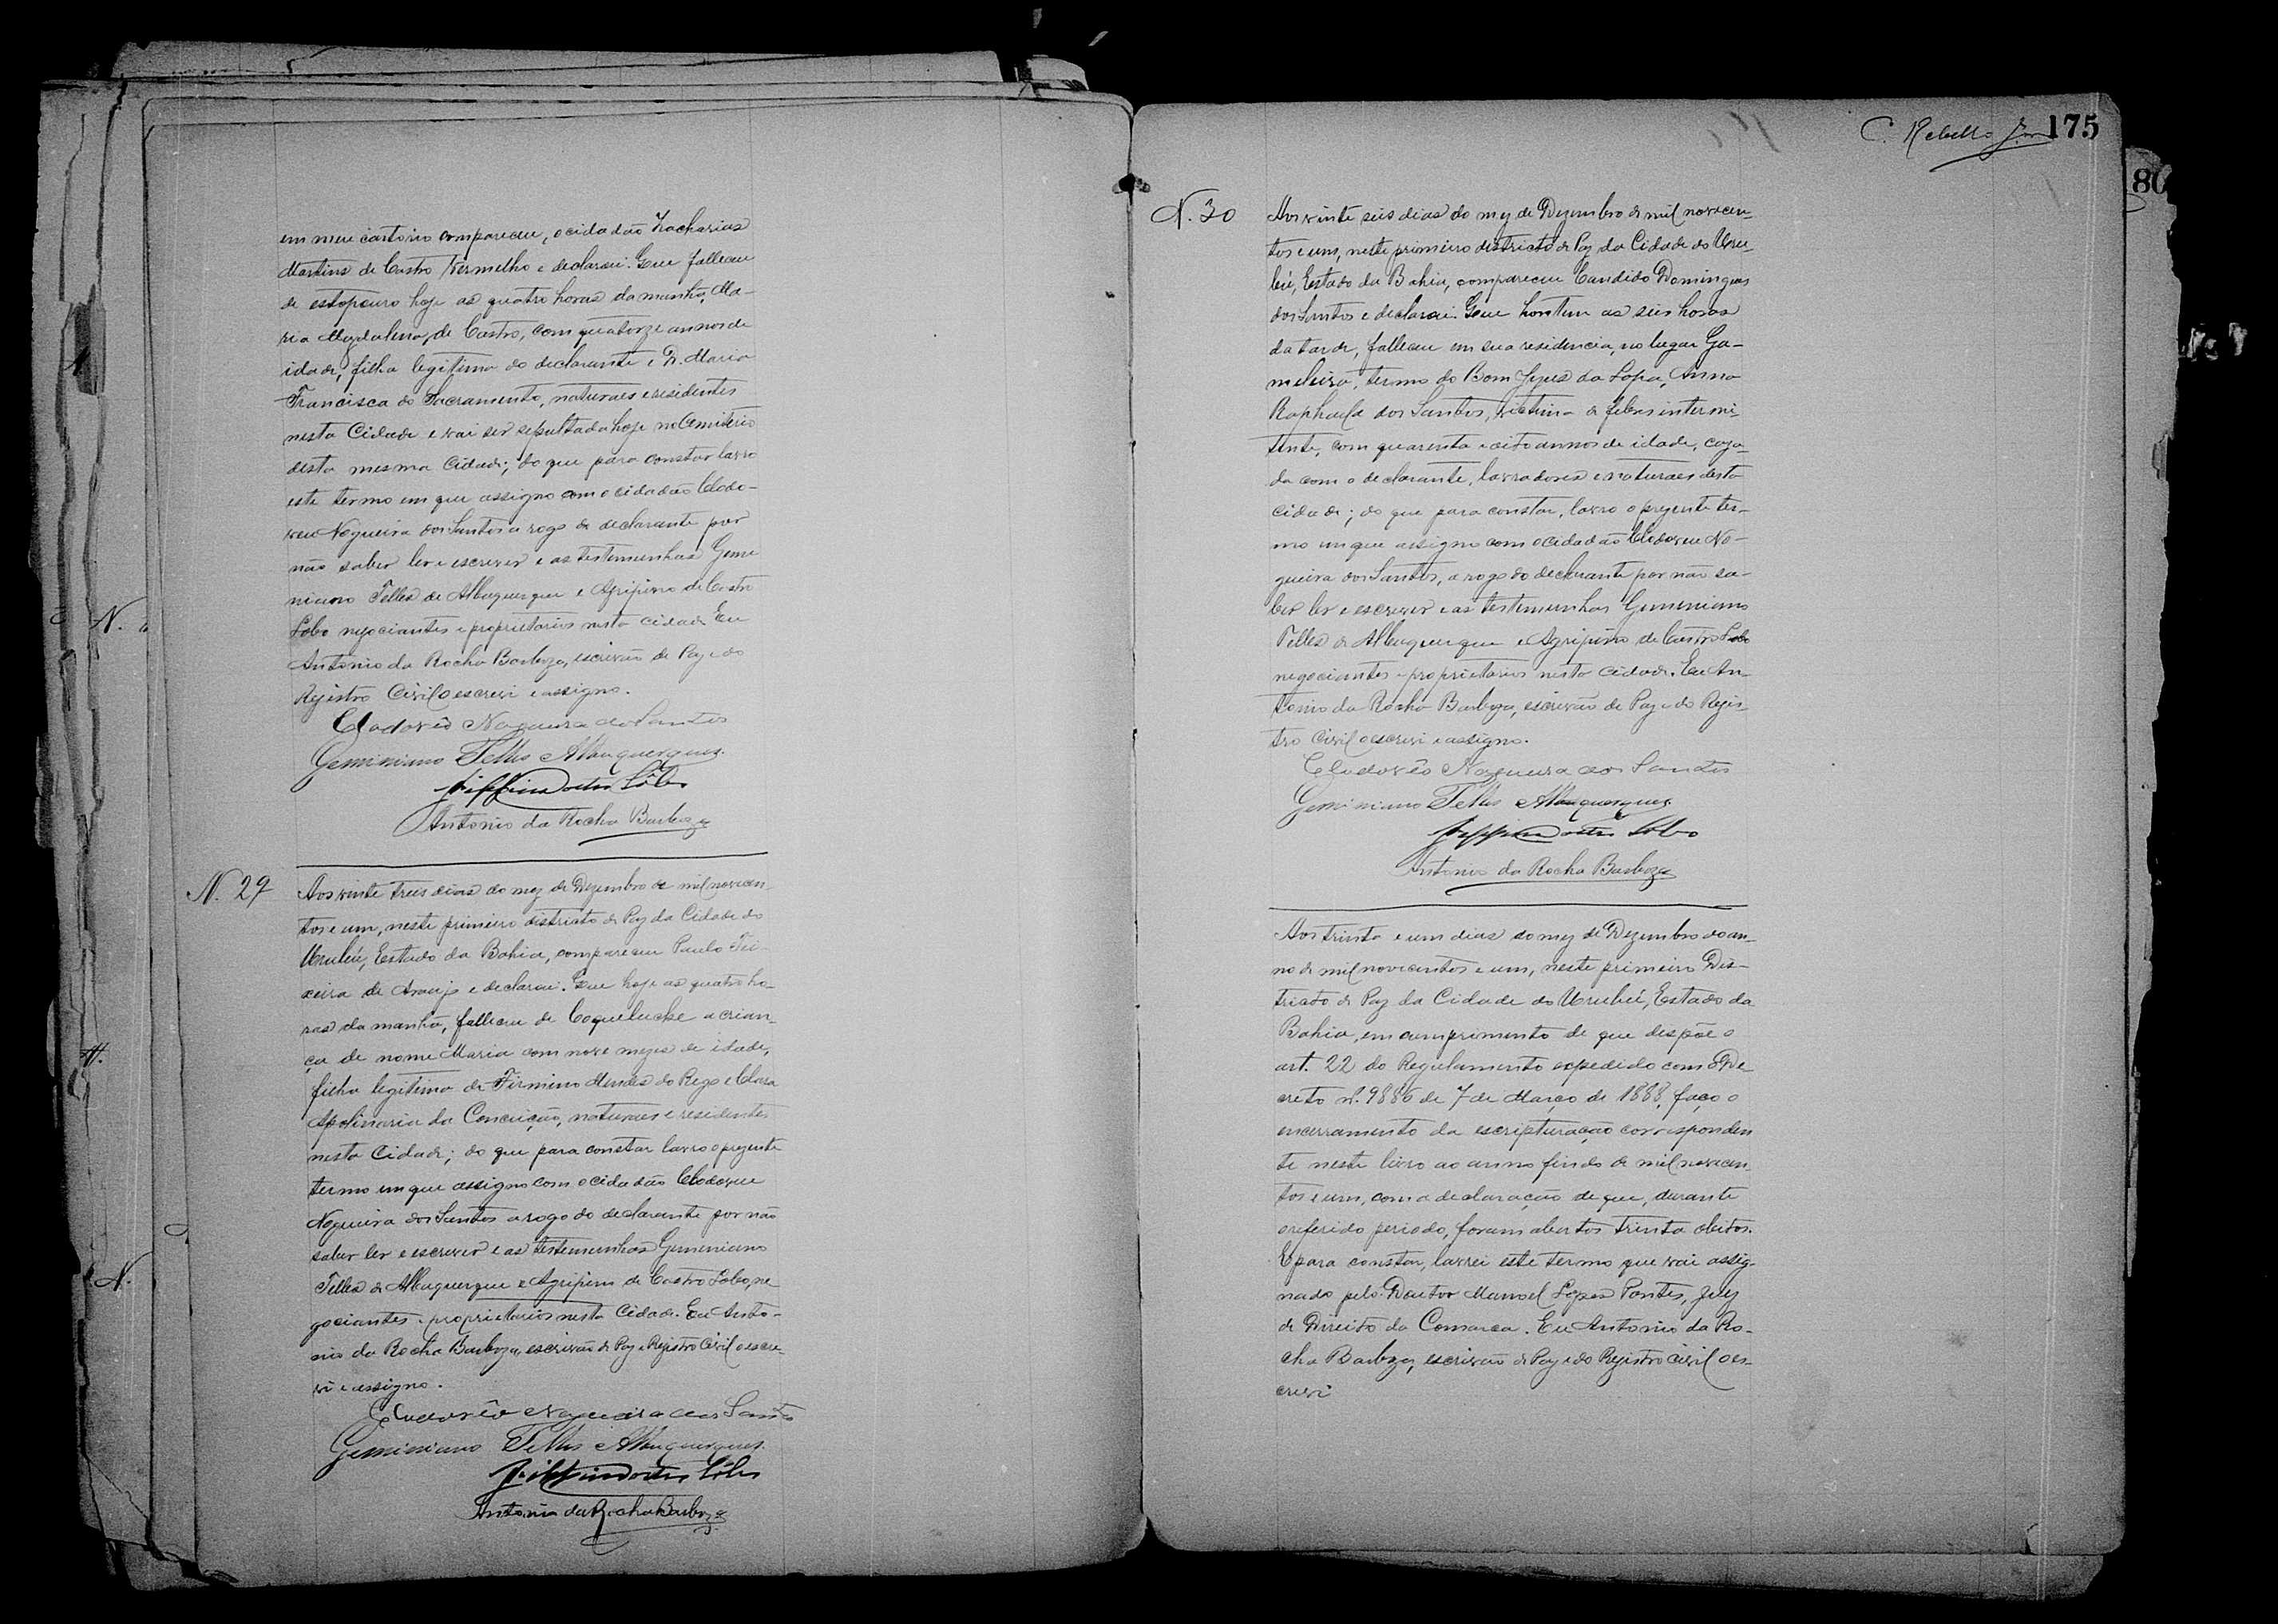 em meu cartorio compareceu, o cidadão Zacharias
Martins de Castro Vermelho e declarou: Que falleceu
de estoporo hoje as quatro horas da manhã, Ma-
ria Magdalena de Castro, com quatorze annos de
idade, filha legitima do declarante e D. Maria
Francisca do Sacramento, naturaes e residentes
nesta Cidade e vai ser sepultada hoje no Cemiterio
desta mesma Cidade; do que para constar lavro
este termo em que assigno com o cidadão Clodo-
veu Nogueira dos Santos a rogo do declarante por
não saber ler e escrever e as testemunhas Gemi
niano Telles de Albuquerque e Agripino de Castro
Lobo negociantes e proprietarios nesta cidade Eu
Antonio da Rocha Barboza, escrivão de Paz e do
Registro Civil o escrevi e assigno.
Clodovêo Nogueira dos Santos
Geminiano Telles Albuquerque
Lôbo
Antonio da Rocha Barboza
N. 29
Aos vinte treis dias do mez de Dezembro de mil novecen-
tos e um, neste primeiro districto de Paz da Cidade do
Urubú, Estado da Bahia, compareceu Paulo Tei-
xeira de Araujo e declarou: Que hoje as quatro ho-
ras da manhã, falleceu de Coqueluche a crian-
ça de nome Maria com nove mezes de idade,
filha legitima de Firmino Mendes do Rego e Clara
Apolinaria da Conceição, naturaes e residentes
nesta Cidade; do que para constar lavro o prezente
termo em que assigno com o cidadão Clodoveu
Nogueira dos Santos a rogo do declarante por não
saber ler e escrever e as testemunhas Geminiano
Telles de Albuquerque e Agripino de Castro Lobo, ne-
gociantes e proprietarios nesta Cidade. Eu Anto-
nio da Rocha Barboza, escrivão de Paz e Registro Civil o escre-
vi e assigno.
Clodovêo Nogueira dos Santos
Geminiano Telles Albuquerque
Lôbo
Antonio da Rocha Barboza
C. Rebello Jor 175
80
N. 30
Aos vinte seis dias do mez de Dezembro de mil novecen-
tos e um, neste primeiro districto de Paz da Cidade do Uru-
bú, Estado da Bahia, compareceu Candido Domingues
dos Santos e declarou: Que hontem as seis horas
da tarde, falleceu em sua residencia, no lugar Ga-
meleira, termo do Bom Jezus da Lapa, Anna
Raphaela dos Santos, victima de febres intermi-
tente, com quarenta e oito annos de idade, caza-
da com o declarante, lavradores e naturaes desta
cidade; do que para constar, lavro o prezente ter-
mo em que assigno com o cidadão Clodoveu No-
gueira dos Santos, a rogo do declarante por não sa-
ber ler e escrever e as testemunhas Geminiano
Telles de Albuquerque e Agripino de Castro Lobo
negociantes e proprietarios nesta cidade. Eu An-
tonio da Rocha Barboza, escrivão de Paz e do Regis-
tro Civil o escrevi e assigno.
Clodovêo Nogueira dos Santos
Geminiano Telles Albuquerque
Lobo
Antonio da Rocha Barboza
Aos trinta e um dias do mez de Dezembro do an-
no de mil novecentos e um, neste primeiro Dis-
tricto de Paz da Cidade do Urubú, Estado da
Bahia, em cumprimento de que despõe o
art. 22 do Regulamento expedido com o De
creto nº. 9886 de 7 de Março de 1888, faço o
encerramento da escripturação corresponden
te neste livro ao anno findo de mil novecen-
tos e um, com a declaração de que, durante
o referido periodo, foram abertos trinta obitos.
E para constar, lavrei este termo que vai assig-
nado pelo Doutor Manoel Lopes Pontes, Juiz
de Direito da Comarca. Eu Antonio da Ro-
cha Barboza, escrivão de Paz e do Registro Civil o es-
crevi